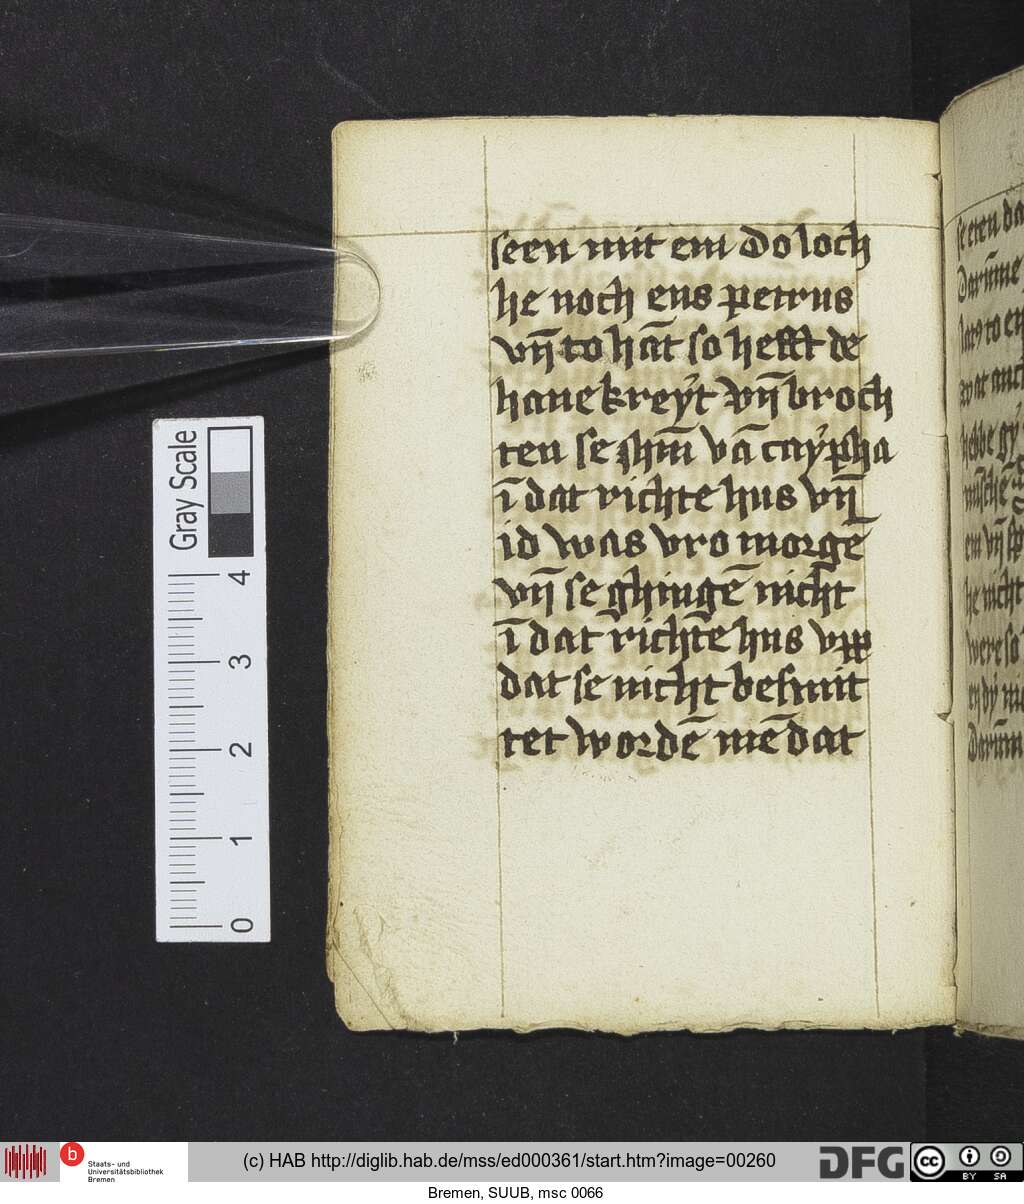 seen mit em do loch
he noch ens petrus
vn̄ to hāt so hefft de
hane kreẏt vn̄ broch
ten se ihm̄ vā caẏpha
ī dat richte hus vn̄
id was vro morgē
vn̄ se ghingē nicht
ī dat richte hus vpp
dat se nicht besmit
tet wordē mē dat
seren da
Darūme
to en
wat
hebbe gẏ
em vn̄
he nicht
were so
Darūm
Gray Scale
4
3
2
1
0
b Staats- und
Universitätsbibliothek
Bremen
(c) HAB http://diglib.hab.de/mss/ed000361/start.htm?image=00260
DFG
cc BY SA
Bremen, SUUB, msc 0066